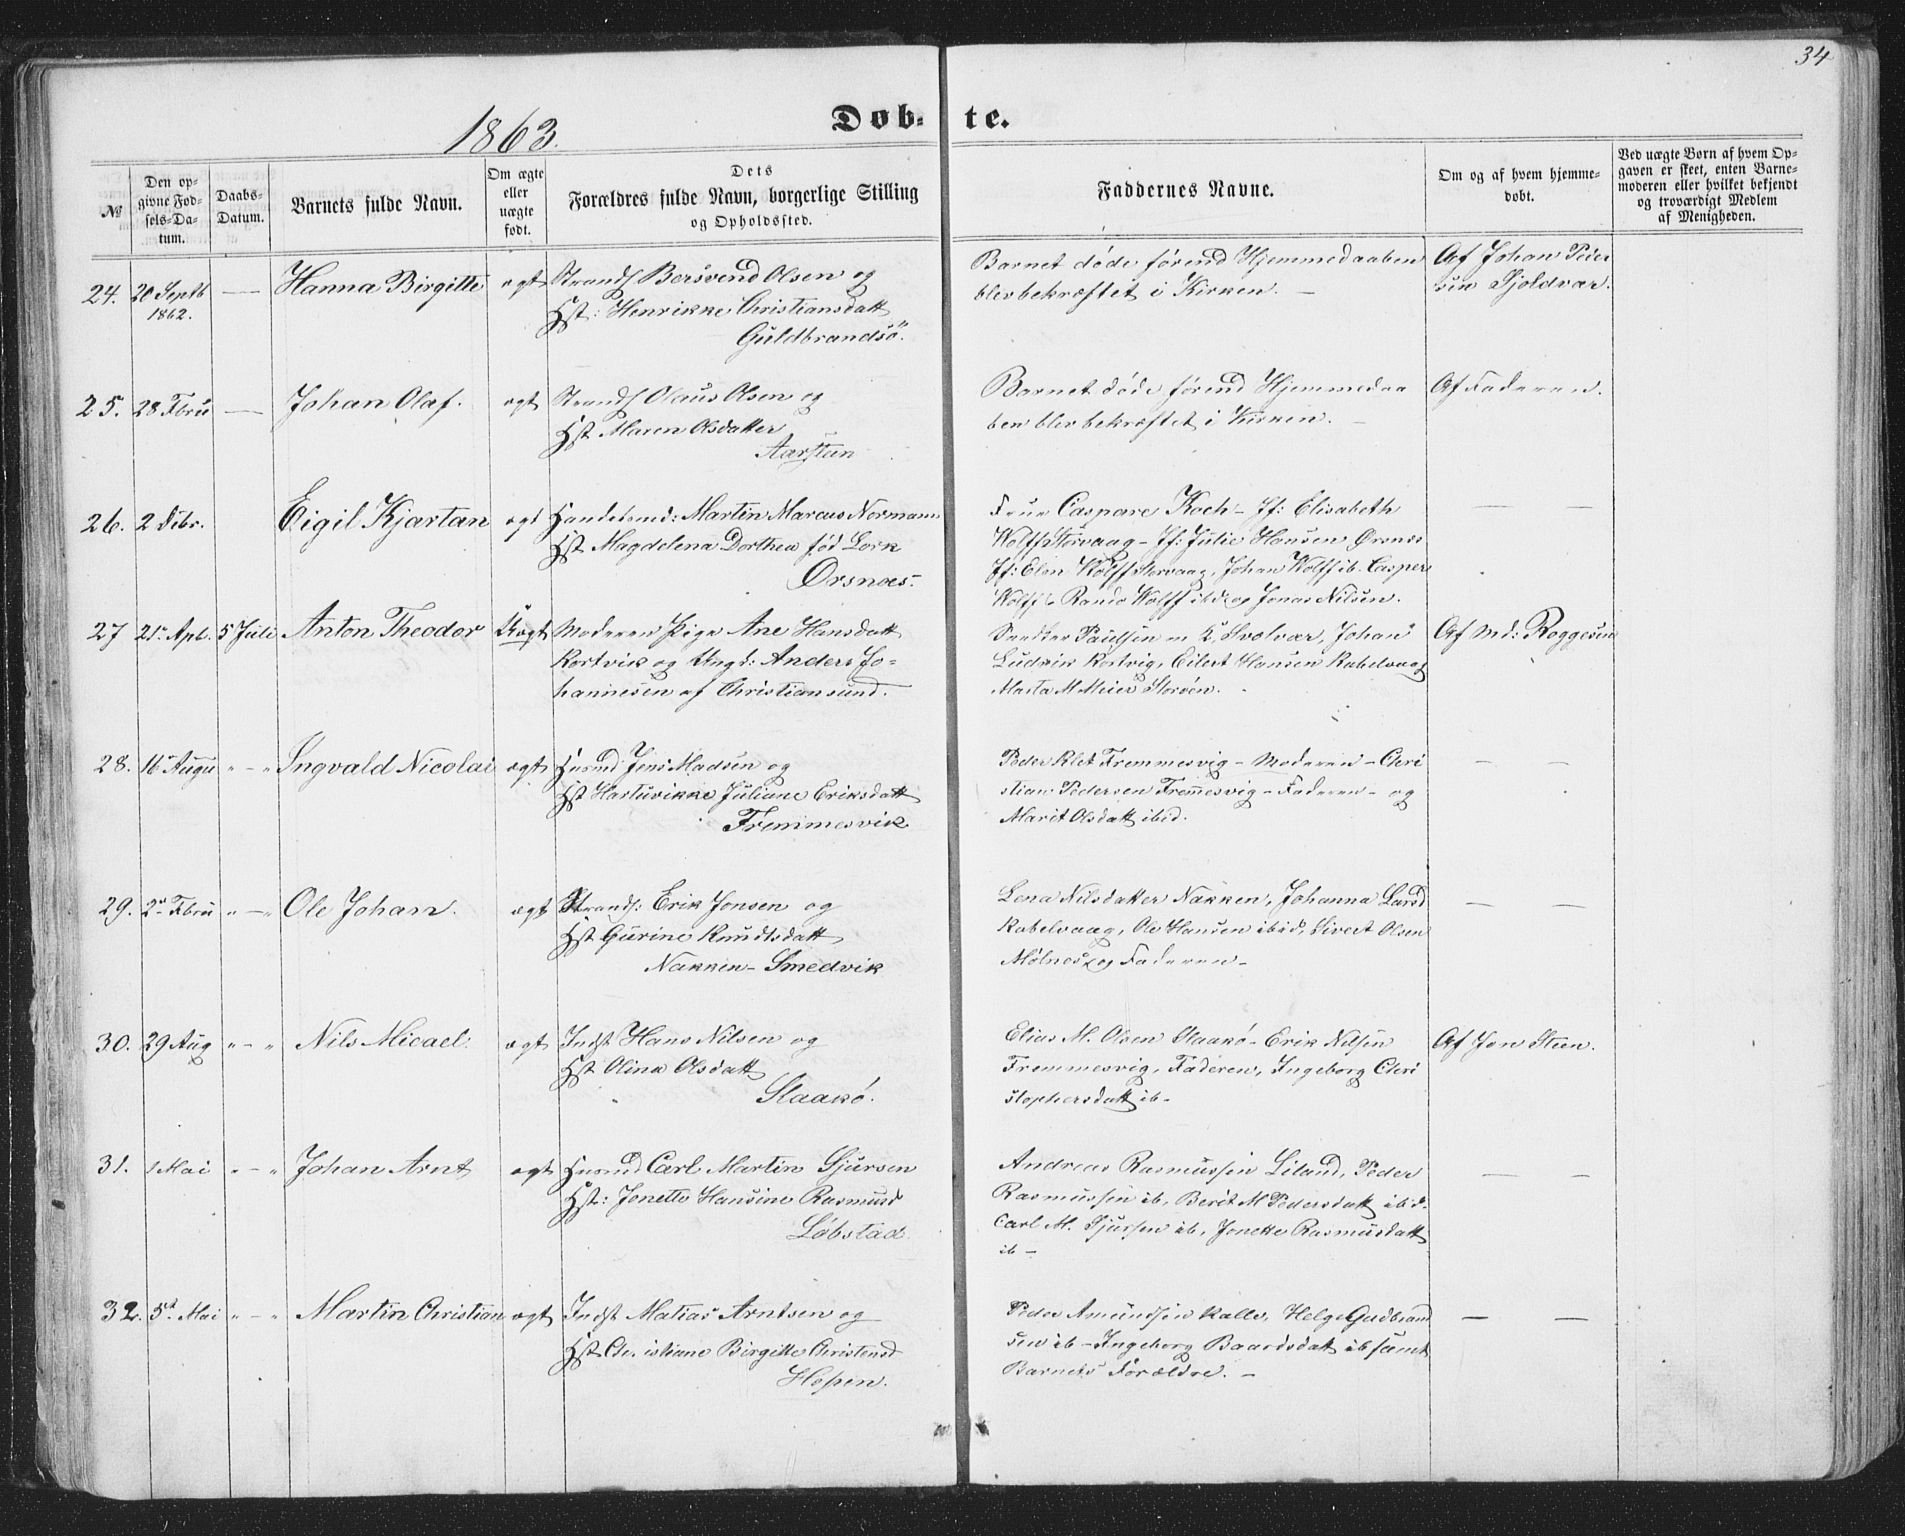 34
1863.
Døb- te.
№
Den op-
givne Fød-
sels-Da-
tum.
Daabs-
Datum.
Barnets fulde Navn.
Om ægte
eller
uægte
født.
Dets
Forældres fulde Navn, borgerlige Stilling
og Opholdssted.
Faddernes Navne.
Om og af hvem hjemme-
døbt.
Ved uægte Børn af hvem Op-
gaven er skeet, enten Barne-
moderen eller hvilket bekjendt
og troværdigt Medlem
af Menigheden.
24. 20 Septb — Hanna Birgitte ægt Strands Bersvend Olsen og
1862.
Hst: Henrikke Christiansdatt
Guldbrandsö.
Barnet døde førend Hjemmedaaben Af Johan Peder
blev bekræftet i Kirken. — sen Sjoldvær.
25. 28 Fbru — Johan Olaf. ægt Strands Olaus Olsen og
Hst Maren Olsdatter
Aarstun
Barnet døde førend Hjemmedaa Af Faderen.
ben blev bekræftet i Kirken. —
26. 2 Debr. Eigil Kjartan ægt Handelsmd: Martin Marcus Normann
Hst Magdelena Dorthea fød Lork
Ørsnæs.
Frue Caspare Koch - Jf: Elisabeth — —
Wolff Storvaag - Jf: Julie Hansen Ørsnæs
Jf: Elen Wolff Storvaag, Johan Wolff ib. Casper
Wolff & Rando Wolff ibd og Jonas Nilsen.
27 21 Apl. 5 Juli Anton Theodor Uægt Moderen Pige Ane Hansdatt
Kortvik og Ungk: Anders Jo-
hannesen af Christiansund.
Paulsen m K, Svolvær, Johan Af Md: Roggesen
Ludvik Kortvig, Eilert Hansen Kabelvaag
Marta M Meier Storøen.
28. 16 Augu " — " Ingvald Nicolai ægt Husmd Jens Madsen og
Hst Hartuvikke Juliane Eriksdatt
Fremmesvik
Peder Klet Fremmesvig - Moderen - Chri — —
stian Pedersen Fremmesvig - Faderen - og
Marit Olsdatt ibid.
29. 2 Fbru " — " Ole Johan. ægt Strands: Erik Jonsen og
Hst Gurine Knudtsdatt
Nakken - Smedvik
Lena Nilsdatter Nakken, Johanna Larsd — —
Kabelvaag, Ole Hansen ibid, Sivert Olsen
Mølnes, og Faderen -
30. 29 Aug " — " Nils Micael. ægt Indst Hans Nilsen og
Hst Olina Olsdatt
Slaakø.
Elias M. Olsen Slaakø - Erik Nilsen Af Jon Steen.
Fremmesvig, Faderen, Ingeborg Chri
stophersdatt ib -
31. 1 Mai " — " Johan Arnt ægt Husmd Carl Martin Sjursen
Hst: Jonette Hansine Rasmusd
Løbstad
Andreas Rasmussen Liland, Peder — —
Rasmussen ib, Berit M Pedersdatt ibid.
Carl M. Sjursen ib, Jonette Rasmusdatt
ib -
32. 5t Mai " — " Martin Christian ægt Indst Matias Arntsen og
Hst Christiane Birgitte Christensd
Hopen.
Peder Amundsen Kalle, Helge Gudbrand — —
sen ib - Ingeborg Baardsdatt ib samt
Barnets Forældre. -